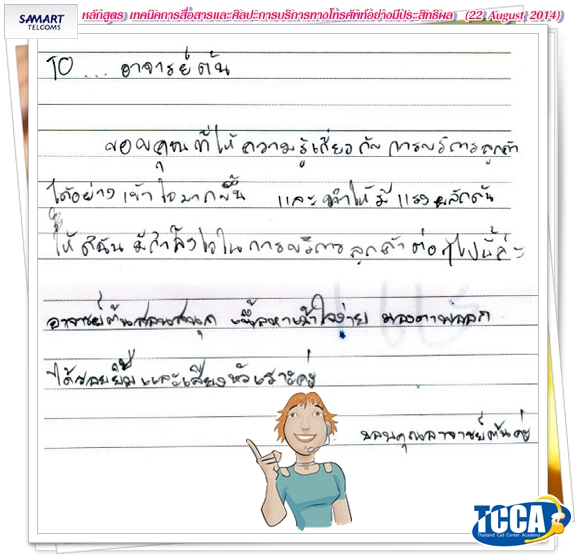 SAMART
TELCOMS
หลักสูตร เทคนิคการสื่อสารและศิลปะการบริการทางโทรศัพท์อย่างมีประสิทธิผล (22 August 2014)
TO ... อาจารย์ต้น
ขอบคุณที่ให้ความรู้เกี่ยวกับ การบริการลูกค้า
ได้อย่างเข้าใจมากขึ้น และทำให้มีแรงผลักดัน
ให้ดิฉันมีกำลังใจในการบริการลูกค้าต่อๆไปนี้ค่ะ
อาจารย์ต้นสอนสนุก เนื้อหาเข้าใจง่าย มุขตาพลอก
ได้รอยยิ้มและเสียงหัวเราะค่ะ
ขอบคุณอาจารย์ต้นค่ะ
TCCA
Thailand Call Center Academy